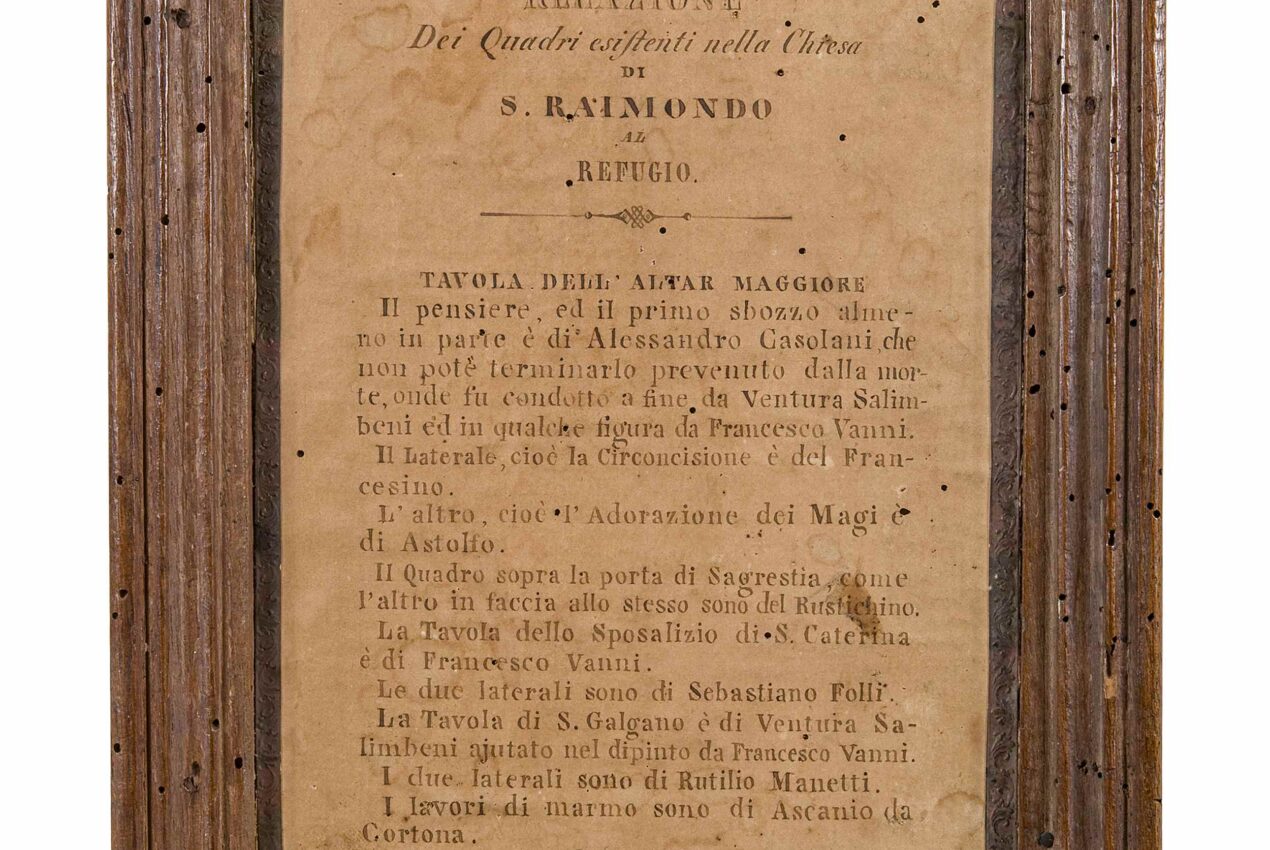 RELAZIONE
Dei Quadri esiſtenti nella Chiesa
DI
S. RAIMONDO
AL
REFUGIO.
TAVOLA DELL' ALTAR MAGGIORE
Il pensiere, ed il primo sbozzo alme-
no in parte è di Alessandro Casolani, che
non potè terminarlo prevenuto dalla mor-
te, onde fu condotto a fine da Ventura Salim-
beni ed in qualche figura da Francesco Vanni.
Il Laterale, cioè la Circoncisione è del Fran-
cesino.
L' altro, cioè l' Adorazione dei Magi è
di Astolfo.
Il Quadro sopra la porta di Sagrestia, come
l'altro in faccia allo stesso sono del Rustichino.
La Tavola dello Sposalizio di S. Caterina
è di Francesco Vanni.
Le due laterali sono di Sebastiano Folli.
La Tavola di S. Galgano è di Ventura Sa-
limbeni ajutato nel dipinto da Francesco Vanni.
I due laterali sono di Rutilio Manetti.
I lavori di marmo sono di Ascanio da
Cortona.